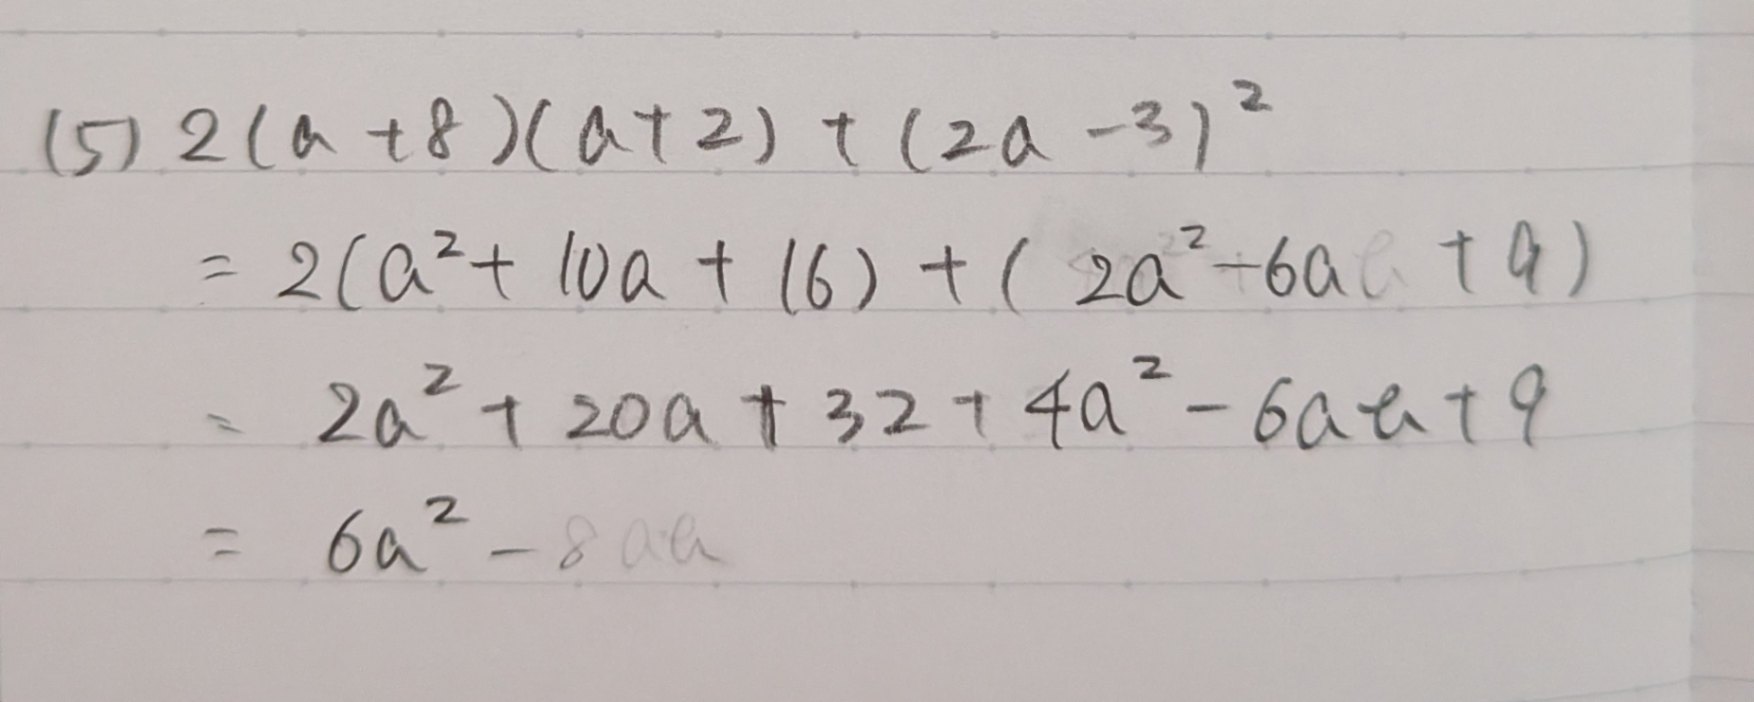 (5) 2(a+8)(a+2)+(2a-3)²
= 2(a²+10a+16)+(2a²-6a+9)
= 2a²+20a+32+4a²-6aa+9
= 6a²-8aa